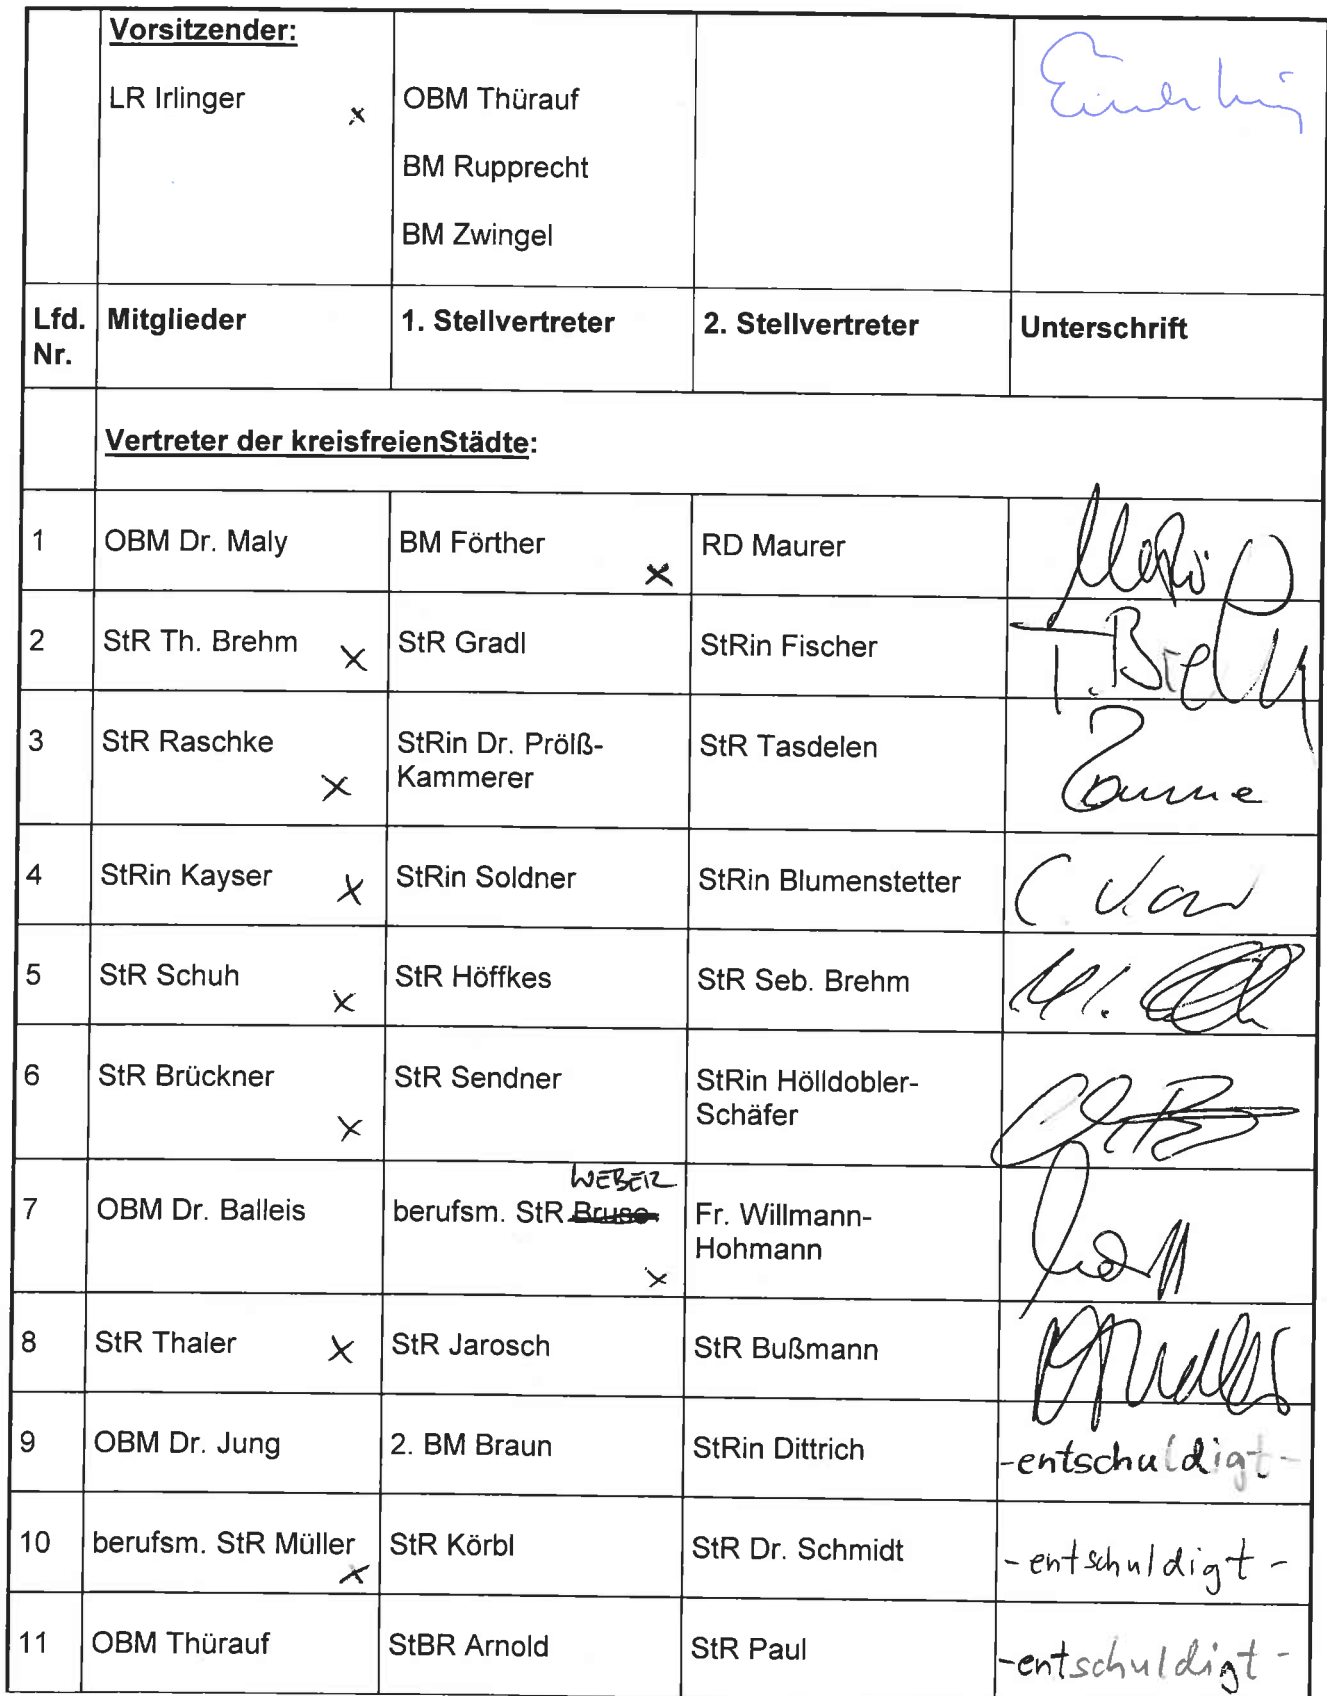 Vorsitzender:
LR Irlinger x OBM Thürauf
BM Rupprecht
BM Zwingel
Lfd. Nr. Mitglieder 1. Stellvertreter 2. Stellvertreter Unterschrift
Vertreter der kreisfreienStädte:
1 OBM Dr. Maly BM Förther x RD Maurer
2 StR Th. Brehm x StR Gradl StRin Fischer T. Brehm
3 StR Raschke x StRin Dr. Prölß-Kammerer StR Tasdelen
4 StRin Kayser x StRin Soldner StRin Blumenstetter
5 StR Schuh x StR Höffkes StR Seb. Brehm
6 StR Brückner x StR Sendner StRin Hölldobler-Schäfer
WEBER
7 OBM Dr. Balleis berufsm. StR Bruse x Fr. Willmann-Hohmann
8 StR Thaler x StR Jarosch StR Bußmann
9 OBM Dr. Jung 2. BM Braun StRin Dittrich -entschuldigt-
10 berufsm. StR Müller x StR Körbl StR Dr. Schmidt -entschuldigt-
11 OBM Thürauf StBR Arnold StR Paul -entschuldigt-